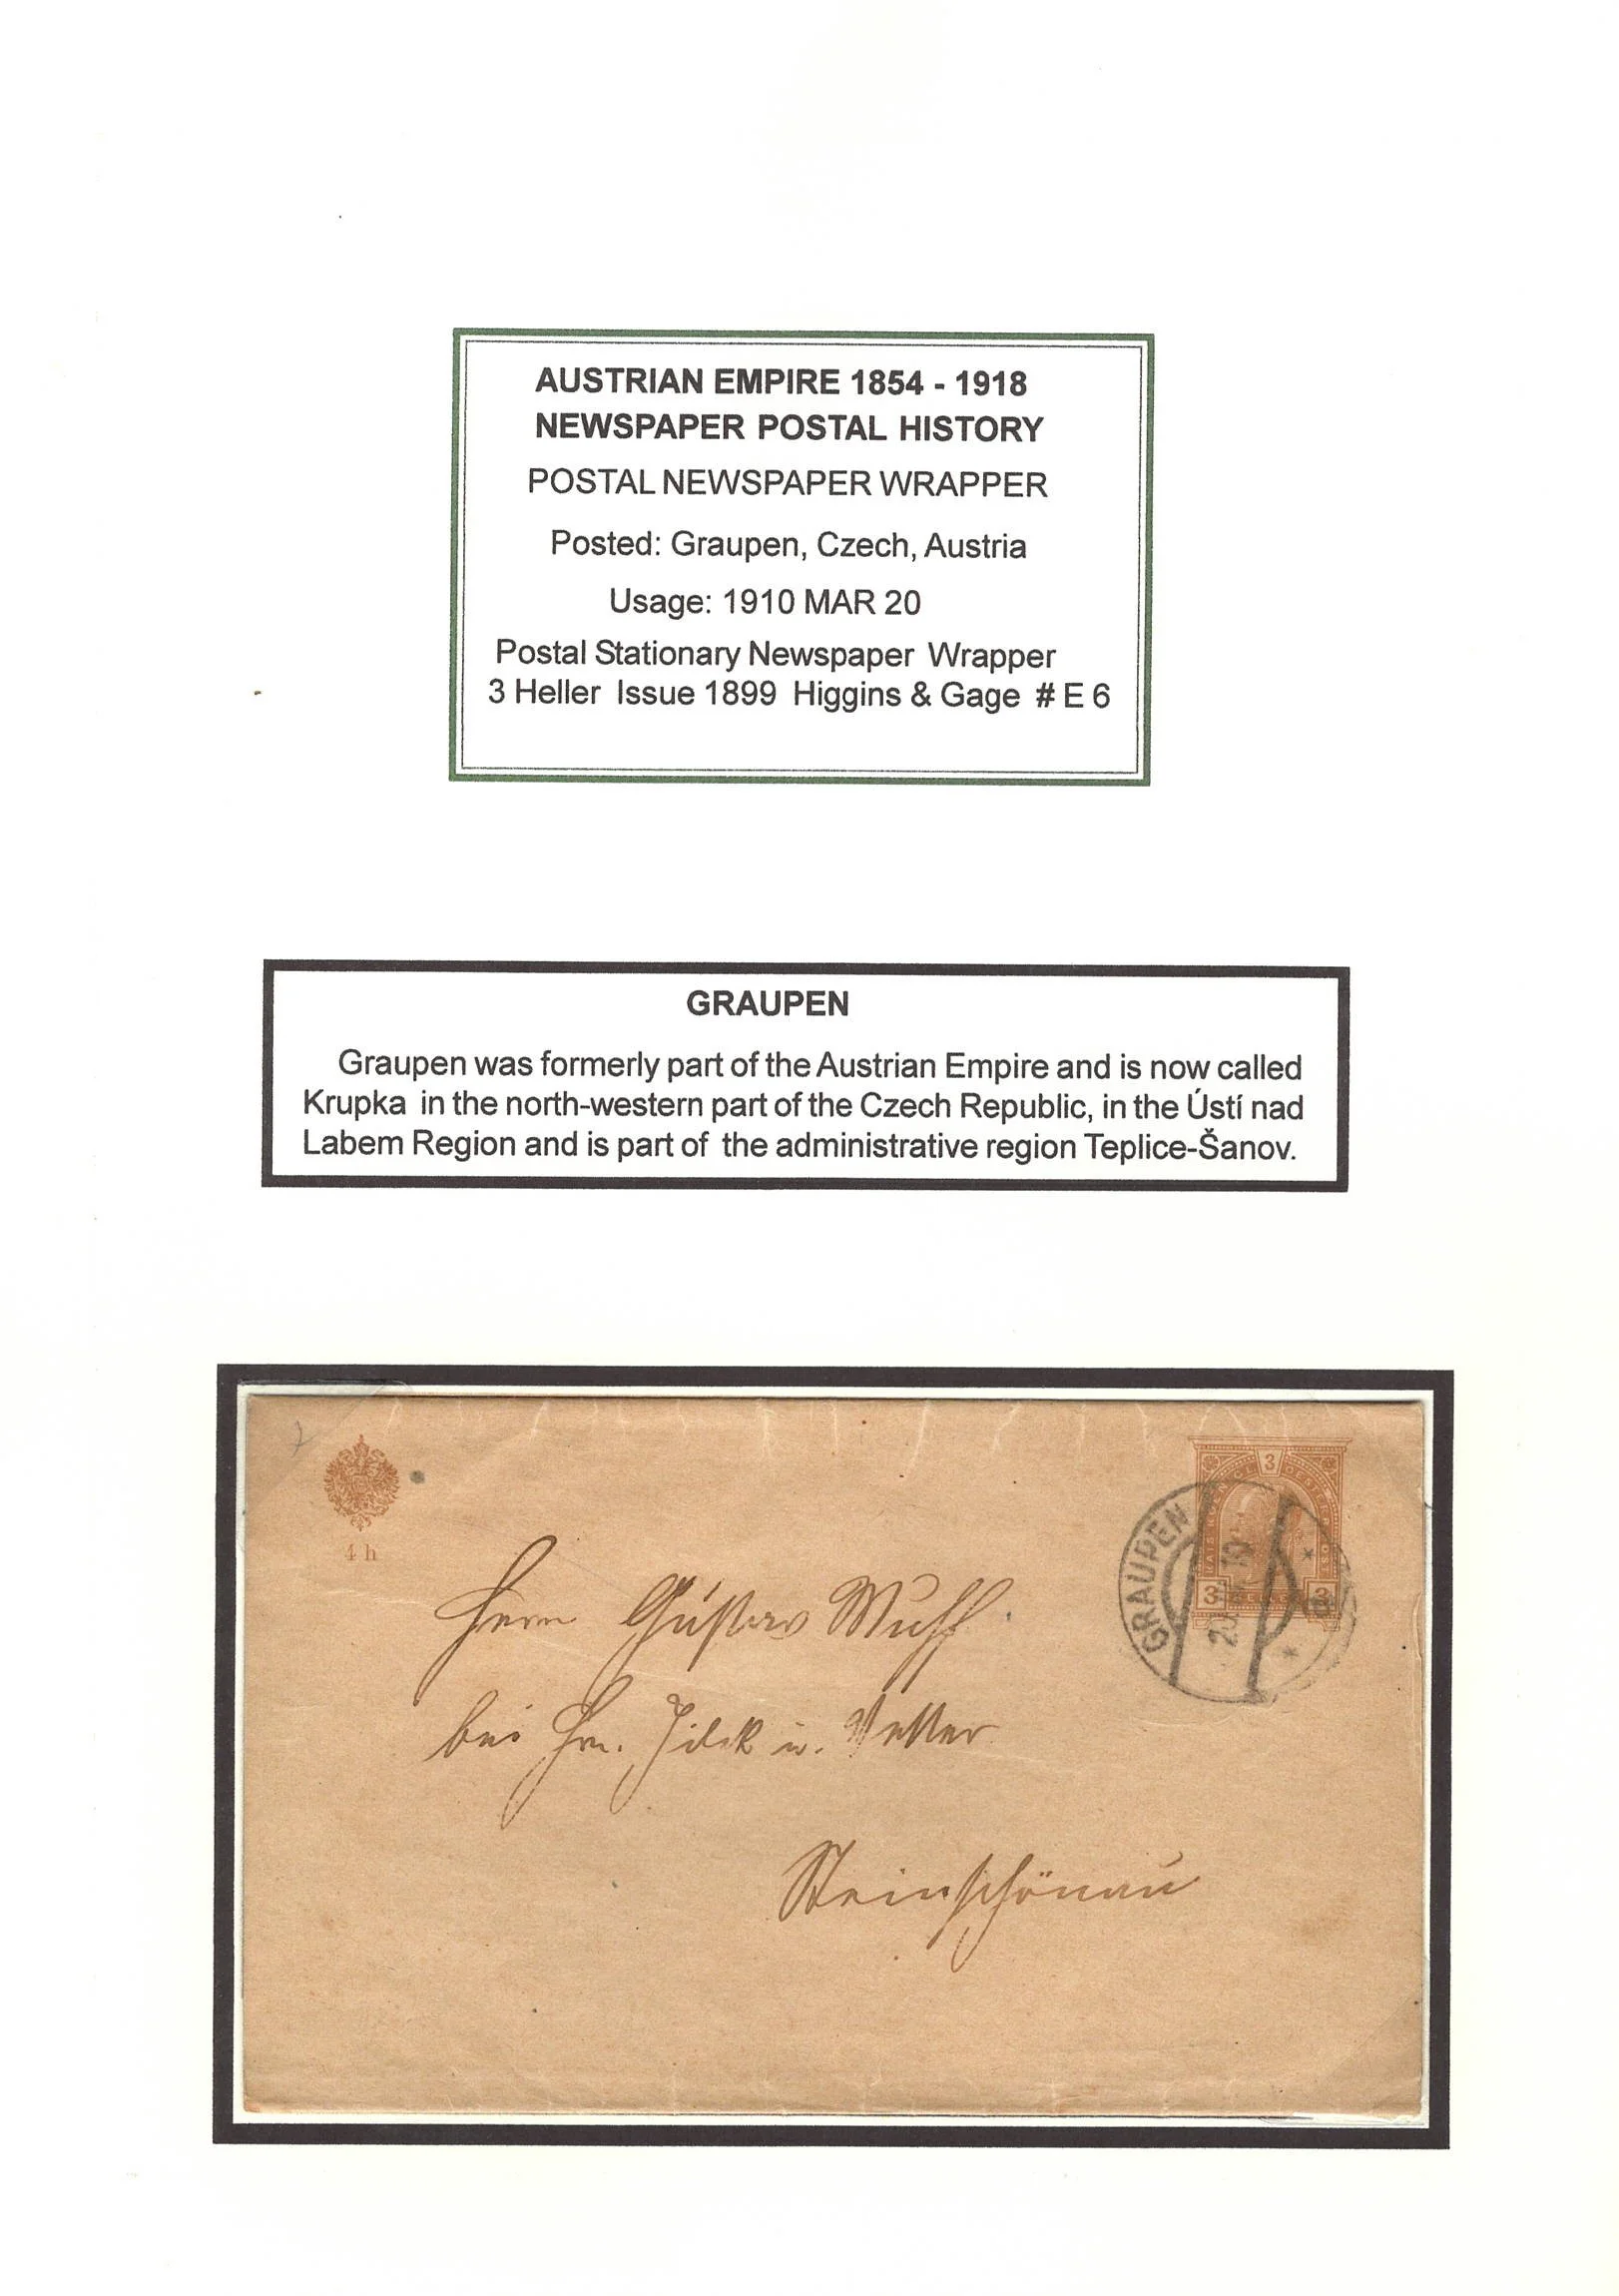 AUSTRIAN EMPIRE 1854 - 1918
NEWSPAPER POSTAL HISTORY
POSTAL NEWSPAPER WRAPPER
Posted: Graupen, Czech, Austria
Usage: 1910 MAR 20
Postal Stationary Newspaper Wrapper
3 Heller Issue 1899 Higgins & Gage # E 6
GRAUPEN
Graupen was formerly part of the Austrian Empire and is now called
Krupka in the north-western part of the Czech Republic, in the Ústí nad
Labem Region and is part of the administrative region Teplice-Šanov.
3
4 h
GRAUPEN
3 3
Herrn Gustav
bei Hrn. u. Vetter
Steinschönau